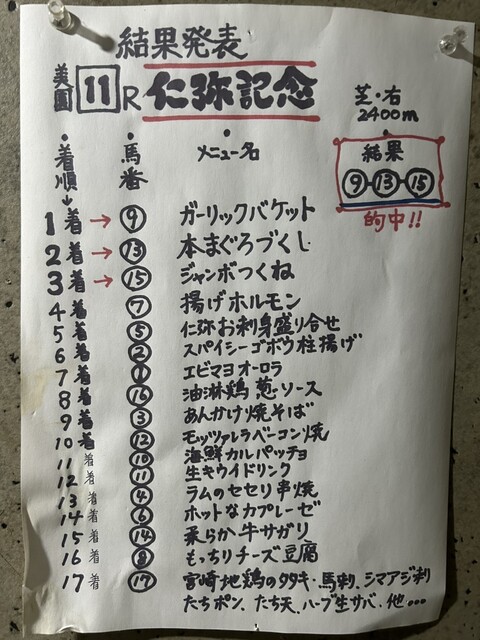 結果発表
美園 11R 仁弥記念
芝・右
2400m
・着順 ・馬番 ・メニュー名
結果
⑨-⑬-⑮
的中!!
1着 → ⑨ ガーリックバケット
2着 → ⑬ 本まぐろづくし
3着 → ⑮ ジャンボつくね
4着 ⑦ 揚げホルモン
5着 ⑤ 仁弥お刺身盛り合せ
6着 ② スパイシーゴボウ柱揚げ
7着 ① エビマヨオーロラ
8着 ⑯ 油淋鶏葱ソース
9着 ③ あんかけ焼そば
10着 ⑫ モッツァレラベーコン焼
11着 ⑩ 海鮮カルパッチョ
12着 ⑪ 生キウイドリンク
13着 ④ ラムのセセリ串焼
14着 ⑥ ホットなカプレーゼ
15着 ⑭ 柔らか牛サガリ
16着 ⑧ もっちりチーズ豆腐
17着 ⑰ 宮崎地鶏のタタキ・馬刺、シマアジ刺
たちポン、たち天、ハーブ生サバ、他・・・